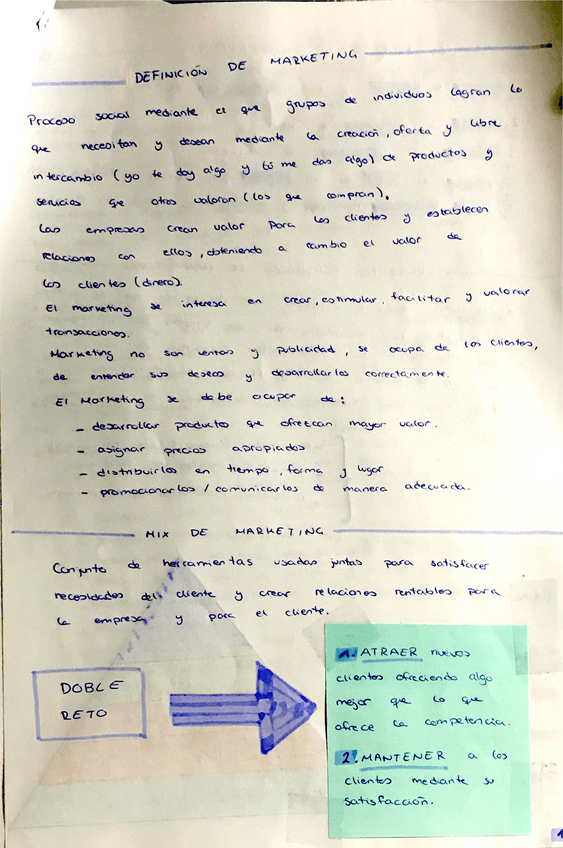 DEFINICIÓN DE MARKETING
Proceso social mediante el que grupos de individuos logran lo
que necesitan y desean mediante la creación, oferta y libre
intercambio (yo te doy algo y tú me das algo) de productos y
servicios que otros valoran (los que compran).
Las empresas crean valor para los clientes y establecen
relaciones con ellos, obteniendo a cambio el valor de
los clientes (dinero).
El marketing se interesa en crear, estimular, facilitar y valorar
transacciones.
Marketing no son ventas y publicidad, se ocupa de los clientes,
de entender sus deseos y desarrollarlos correctamente.
El Marketing se debe ocupar de:
- desarrollar productos que ofrezcan mayor valor.
- asignar precios apropiados
- distribuirlos en tiempo, forma y lugar
- promocionarlos / comunicarlos de manera adecuada.
MIX DE MARKETING
Conjunto de herramientas usadas juntas para satisfacer
necesidades del cliente y crear relaciones rentables para
la empresa y para el cliente.
DOBLE
RETO
1. ATRAER nuevos
clientes ofreciendo algo
mejor que lo que
ofrece la competencia.
2. MANTENER a los
clientes mediante su
satisfacción.
1